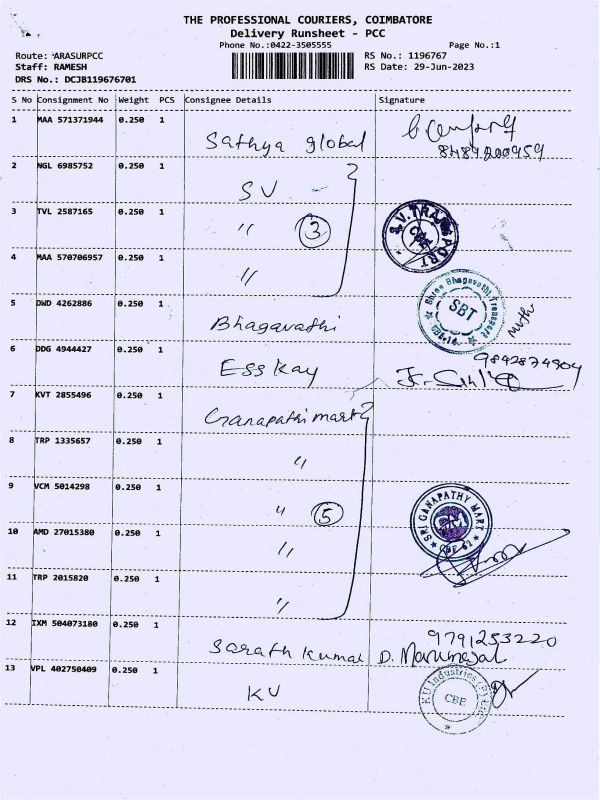 THE PROFESSIONAL COURIERS, COIMBATORE
Delivery Runsheet - PCC
Phone No.:0422-3505555 Page No.:1
Route: ARASURPCC RS No.: 1196767
Staff: RAMESH RS Date: 29-Jun-2023
DRS No.: DCJB119676701
S No Consignment No Weight PCS Consignee Details Signature
1 MAA 571371944 0.250 1
Sathya global
8489200959
2 NGL 6985752 0.250 1
SV
3 TVL 2587165 0.250 1
" 3 S.V.TRANSPORT
4 MAA 570706957 0.250 1
"
5 DWD 4262886 0.250 1
Bhagavathi Shree Bhagavathi Transport SBT CBE-14
6 DDG 4944427 0.250 1
Ess Kay 9842874904
7 KVT 2855496 0.250 1
Ganapathi mart
8 TRP 1335657 0.250 1
"
9 VCM 5014298 0.250 1
" 5 SRI GANAPATHY MART CBE-62
10 AMD 27015380 0.250 1
"
11 TRP 2015820 0.250 1
"
12 IXM 504073180 0.250 1
9791253220
Sarath Kumar D.
13 VPL 402750409 0.250 1
KU KU Industries (P) CBE